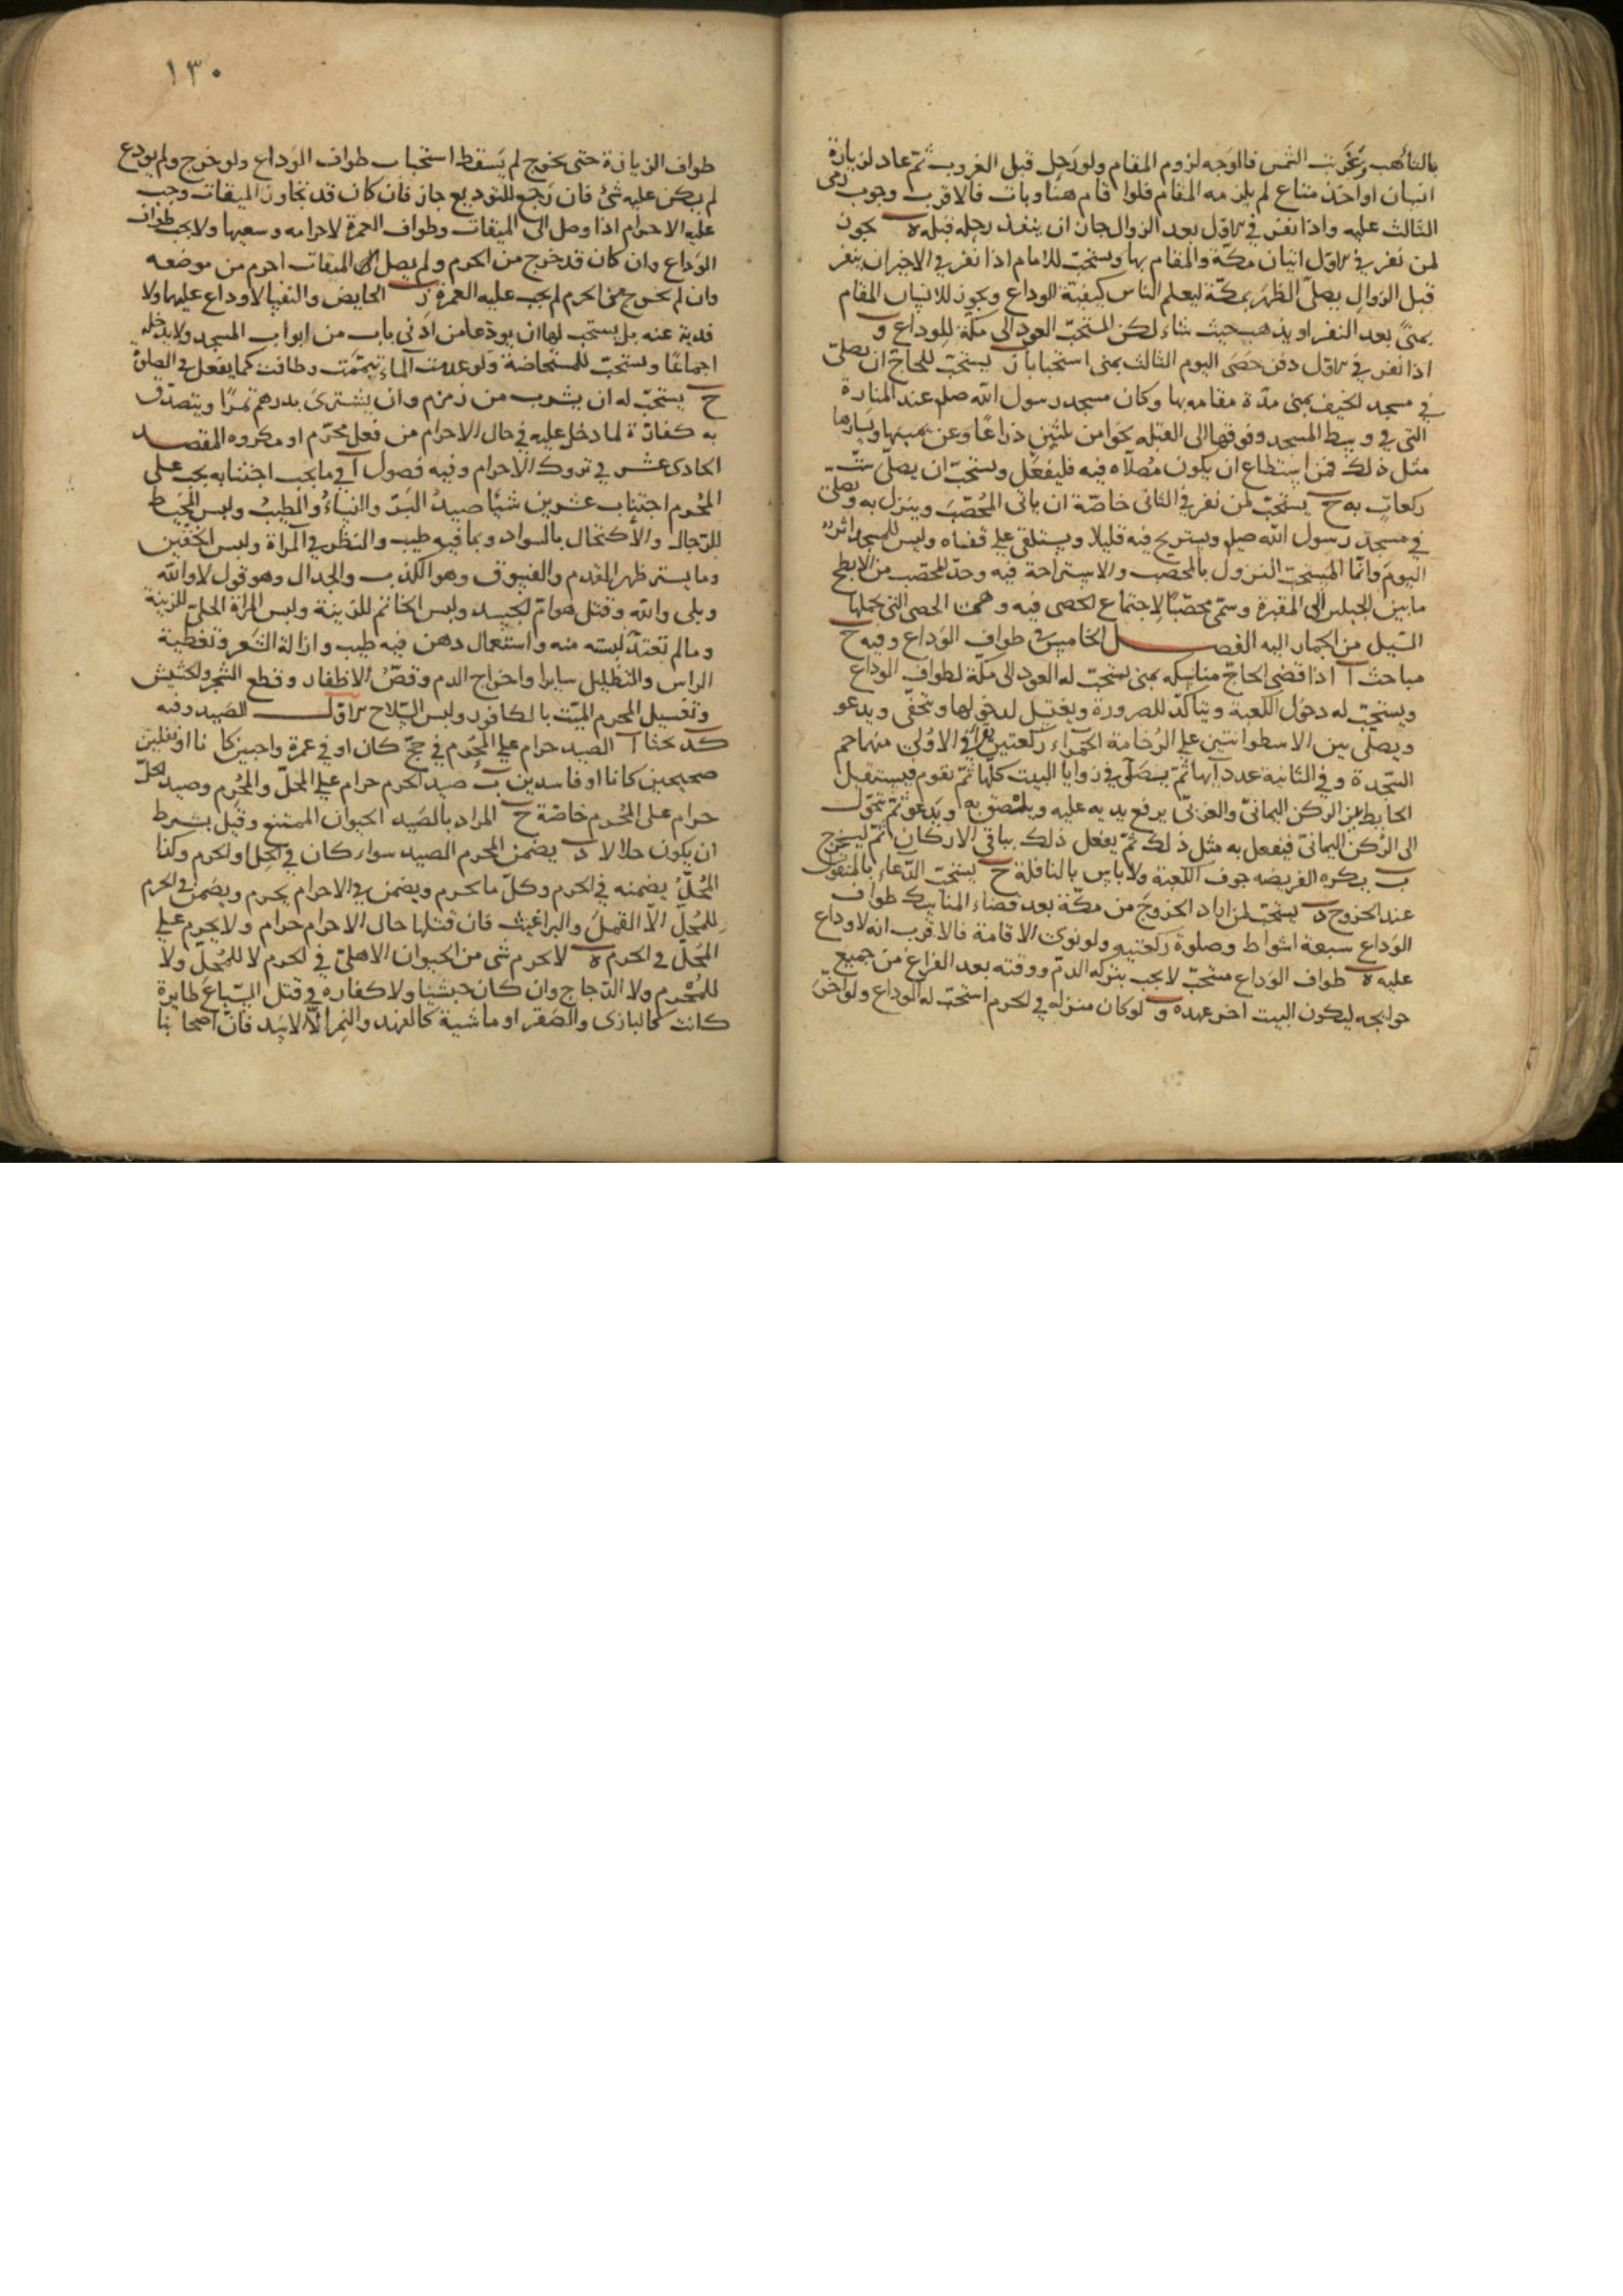 بالتأهب وغربت الشمس فالاوجه لزوم المقام ولو رحل قبل الغروب ثم عاد لزيارة
انسان او اخذ متاع لم يلزمه المقام فلو اقام هنا وبات فالاقرب وجوب رمى
الثالث عليه واذا نفر في الاول بعد الزوال جاز ان ينفذ رحله قبله ه يجوز
لمن نفر في الاول اتيان مكة والمقام بها ويستحب للامام اذا نفر في الاخير ان ينفر
قبل الزوال يصلى الظهر بمكة ليعلم الناس كيفية الوداع ويجوز للانسان المقام
بمنى بعد النفر او يذهب حيث شاء لكن المستحب العود الى مكة للوداع و
اذا نفر في الاول دفن حصى اليوم الثالث بمنى استحبابا ز يستحب للحاج ان يصلى
في مسجد الخيف بمنى مدة مقامه بها وكان مسجد رسول الله صلعم عند المنارة
التي في وسط المسجد وفوقها الى القبلة نحوا من ثلثين ذراعا وعن يمينها ويسارها
مثل ذلك فمن استطاع ان يكون مصلاه فيه فليفعل ويستحب ان يصلى ست
ركعات به ح يستحب لمن نفر في الثاني خاصة ان ياتى المحصب وينزل به ويصلى
في مسجد رسول الله صلعم ويستريح فيه قليلا ويستلقى على قفاه وليس للمسجد اثر
اليوم وانما المستحب النزول بالمحصب والاستراحة فيه وحد المحصب من الابطح
ما بين الجبلين الى المقبرة وسمى محصبا لاجتماع الحصى فيه وهى الحصى التي يحملها
السيل من الجمار اليه الفصل الخامس في طواف الوداع وفيه ح
مباحث آ اذا قضى الحاج مناسكه بمنى يستحب له العود الى مكة لطواف الوداع
ويستحب له دخول الكعبة ويتاكد للصرورة ويغتسل لدخولها ويتحفى ويدعو
ويصلى بين الاسطوانتين على الرخامة الحمراء ركعتين يقرأ في الاولى منهما حم
السجدة وفي الثانية عدد آيها ثم يصلى في زوايا البيت كلها ثم يقوم فيستقبل
الحايط بين الركن اليمانى والغربى يرفع يديه عليه ويلتصق به ويدعو ثم يتحول
الى الركن اليمانى فيفعل به مثل ذلك ثم يفعل ذلك بباقى الاركان ثم ليخرج
ب يكره الفريضه جوف الكعبة ولا باس بالنافلة ح يستحب الدعاء بالمنقول
عند الخروج د يستحب لمن اراد الخروج من مكة بعد قضاء المناسك طواف
الوداع سبعة اشواط وصلوة ركعتيه ولو نوى الاقامة فالاقرب انه لا وداع
عليه ه طواف الوداع مستحب لا يجب بتركه الدم ووقته بعد الفراغ من جميع
حوايجه ليكون البيت اخر عهده و لو كان منزله في الحرم استحب له الوداع ولو اخر
١٣٠
طواف الزيارة حتى يخرج لم يسقط استحباب طواف الوداع ولو خرج ولم يودع
لم يكن عليه شئ فان رجع للتوديع جاز فان كان قد تجاوز الميقات وجب
عليه الاحرام اذا وصل الى الميقات وطواف العمرة لاحرامه وسعيها ولا يجب طواف
الوداع وان كان قد خرج من الحرم ولم يصل الى الميقات احرم من موضعه
وان لم يخرج من الحرم لم يجب عليه العمرة ز الحايض والنفسا لا وداع عليها ولا
فدية عنه بل يستحب لها ان يودعا من ادنى باب من ابواب المسجد ولا يدخله
اجماعا ويستحب للمستحاضة ولو عدمت الماء تيممت وطافت كما يفعل في الصلوة
ح يستحب له ان يشرب من زمزم وان يشترى بدرهم تمرا ويتصدق
به كفارة لما دخل عليه في حال الاحرام من فعل محرم او مكروه المقصد
الحادى عشر في تروك الاحرام وفيه فصول آ في ما يجب اجتنابه يجب على
المحرم اجتناب عشرين شيئا صيد البر والنساء والطيب ولبس المخيط
للرجال والاكتحال بالسواد وبما فيه طيب والنظر في المرآة ولبس الخفين
وما يستر ظهر القدم والفسوق وهو الكذب والجدال وهو قول لا والله
وبلى والله وقتل هوام الجسد ولبس الخاتم للزينة ولبس المرأة الحلى للزينة
وما لم تعتد لبسه منه واستعمال دهن فيه طيب وازالة الشعر وتغطية
الراس والتظليل سايرا واخراج الدم وقص الاظفار وقطع الشجر والحشيش
وتغسيل المحرم الميت بالكافور ولبس السلاح الاول الصيد وفيه
كد بحثا آ الصيد حرام على المحرم في حج كان او في عمرة واجبين كانا او نفلين
صحيحين كانا او فاسدين ب صيد الحرم حرام على المحل والمحرم وصيد الحل
حرام على المحرم خاصة ح المراد بالصيد الحيوان الممتنع وقيل بشرط
ان يكون حلالا د يضمن المحرم الصيد سواء كان في الحل او الحرم وكذا
المحل يضمنه في الحرم وكل ما يحرم ويضمن في الاحرام يحرم ويضمن في الحرم
للمحل الا القمل والبراغيث فان قتلها حال الاحرام حرام ولا يحرم على
المحل في الحرم ه لا يحرم شئ من الحيوان الاهلى في الحرم لا للمحل ولا
للمحرم ولا الدجاج وان كان حبشيا ولا كفاره في قتل السباع طايرة
كانت كالبازى والصقر او ماشية كالفهد والنمر الا الاسد فان اصحابنا